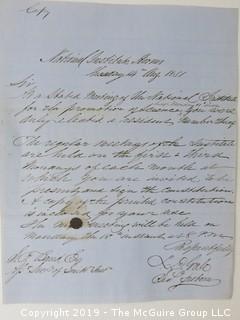 Copy
National Institute Rooms
Monday 4th Aug. 1851
Sir
At a Stated Meeting of the National Institute
for the promotion of Science, you were
duly elected a resident member thereof
The regular meetings of the Institute
are held on the first & third
Mondays of each month at
which you are invited to be
present, and sign the constitution.
A copy of the printed constitution
is enclosed for your use
meeting will be held on
Monday the 18th instant at 8 P.M.
Respectfully
Esq
Copyright 2019 - The McBride Group LLC